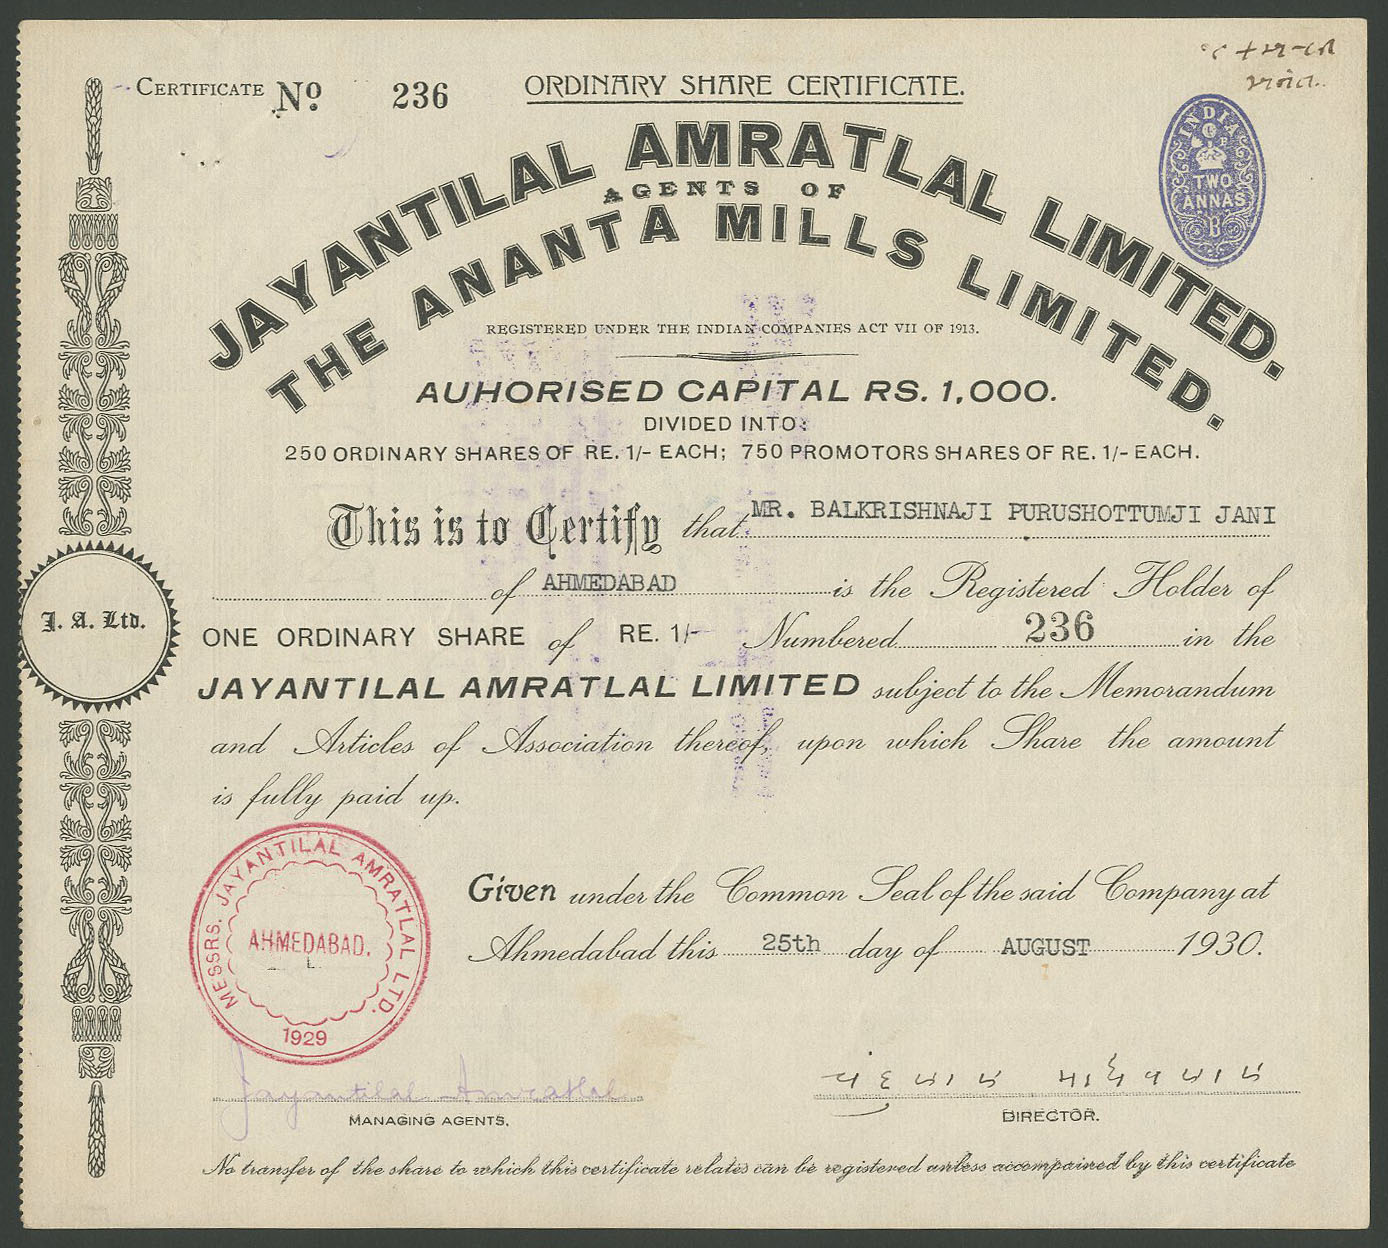 CERTIFICATE No 236
ORDINARY SHARE CERTIFICATE.
INDIA
TWO
ANNAS
B
JAYANTILAL AMRATLAL LIMITED.
AGENTS OF
THE ANANTA MILLS LIMITED.
REGISTERED UNDER THE INDIAN COMPANIES ACT VII OF 1913.
AUHORISED CAPITAL RS. 1,000.
DIVIDED INTO:
250 ORDINARY SHARES OF RE. 1/- EACH; 750 PROMOTORS SHARES OF RE. 1/- EACH.
This is to Certify that MR. BALKRISHNAJI PURUSHOTTUMJI JANI
of AHMEDABAD is the Registered Holder of
J. A. Ltd.
ONE ORDINARY SHARE of RE. 1/- Numbered 236 in the
JAYANTILAL AMRATLAL LIMITED subject to the Memorandum
and Articles of Association thereof, upon which Share the amount
is fully paid up.
MESSRS. JAYANTILAL AMRATLAL LTD.
AHMEDABAD.
1929
Given under the Common Seal of the said Company at
Ahmedabad this 25th day of AUGUST 1930.
Jayantilal Amratlal
MANAGING AGENTS.
DIRECTOR.
No transfer of the share to which this certificate relates can be registered unless accompained by this certificate